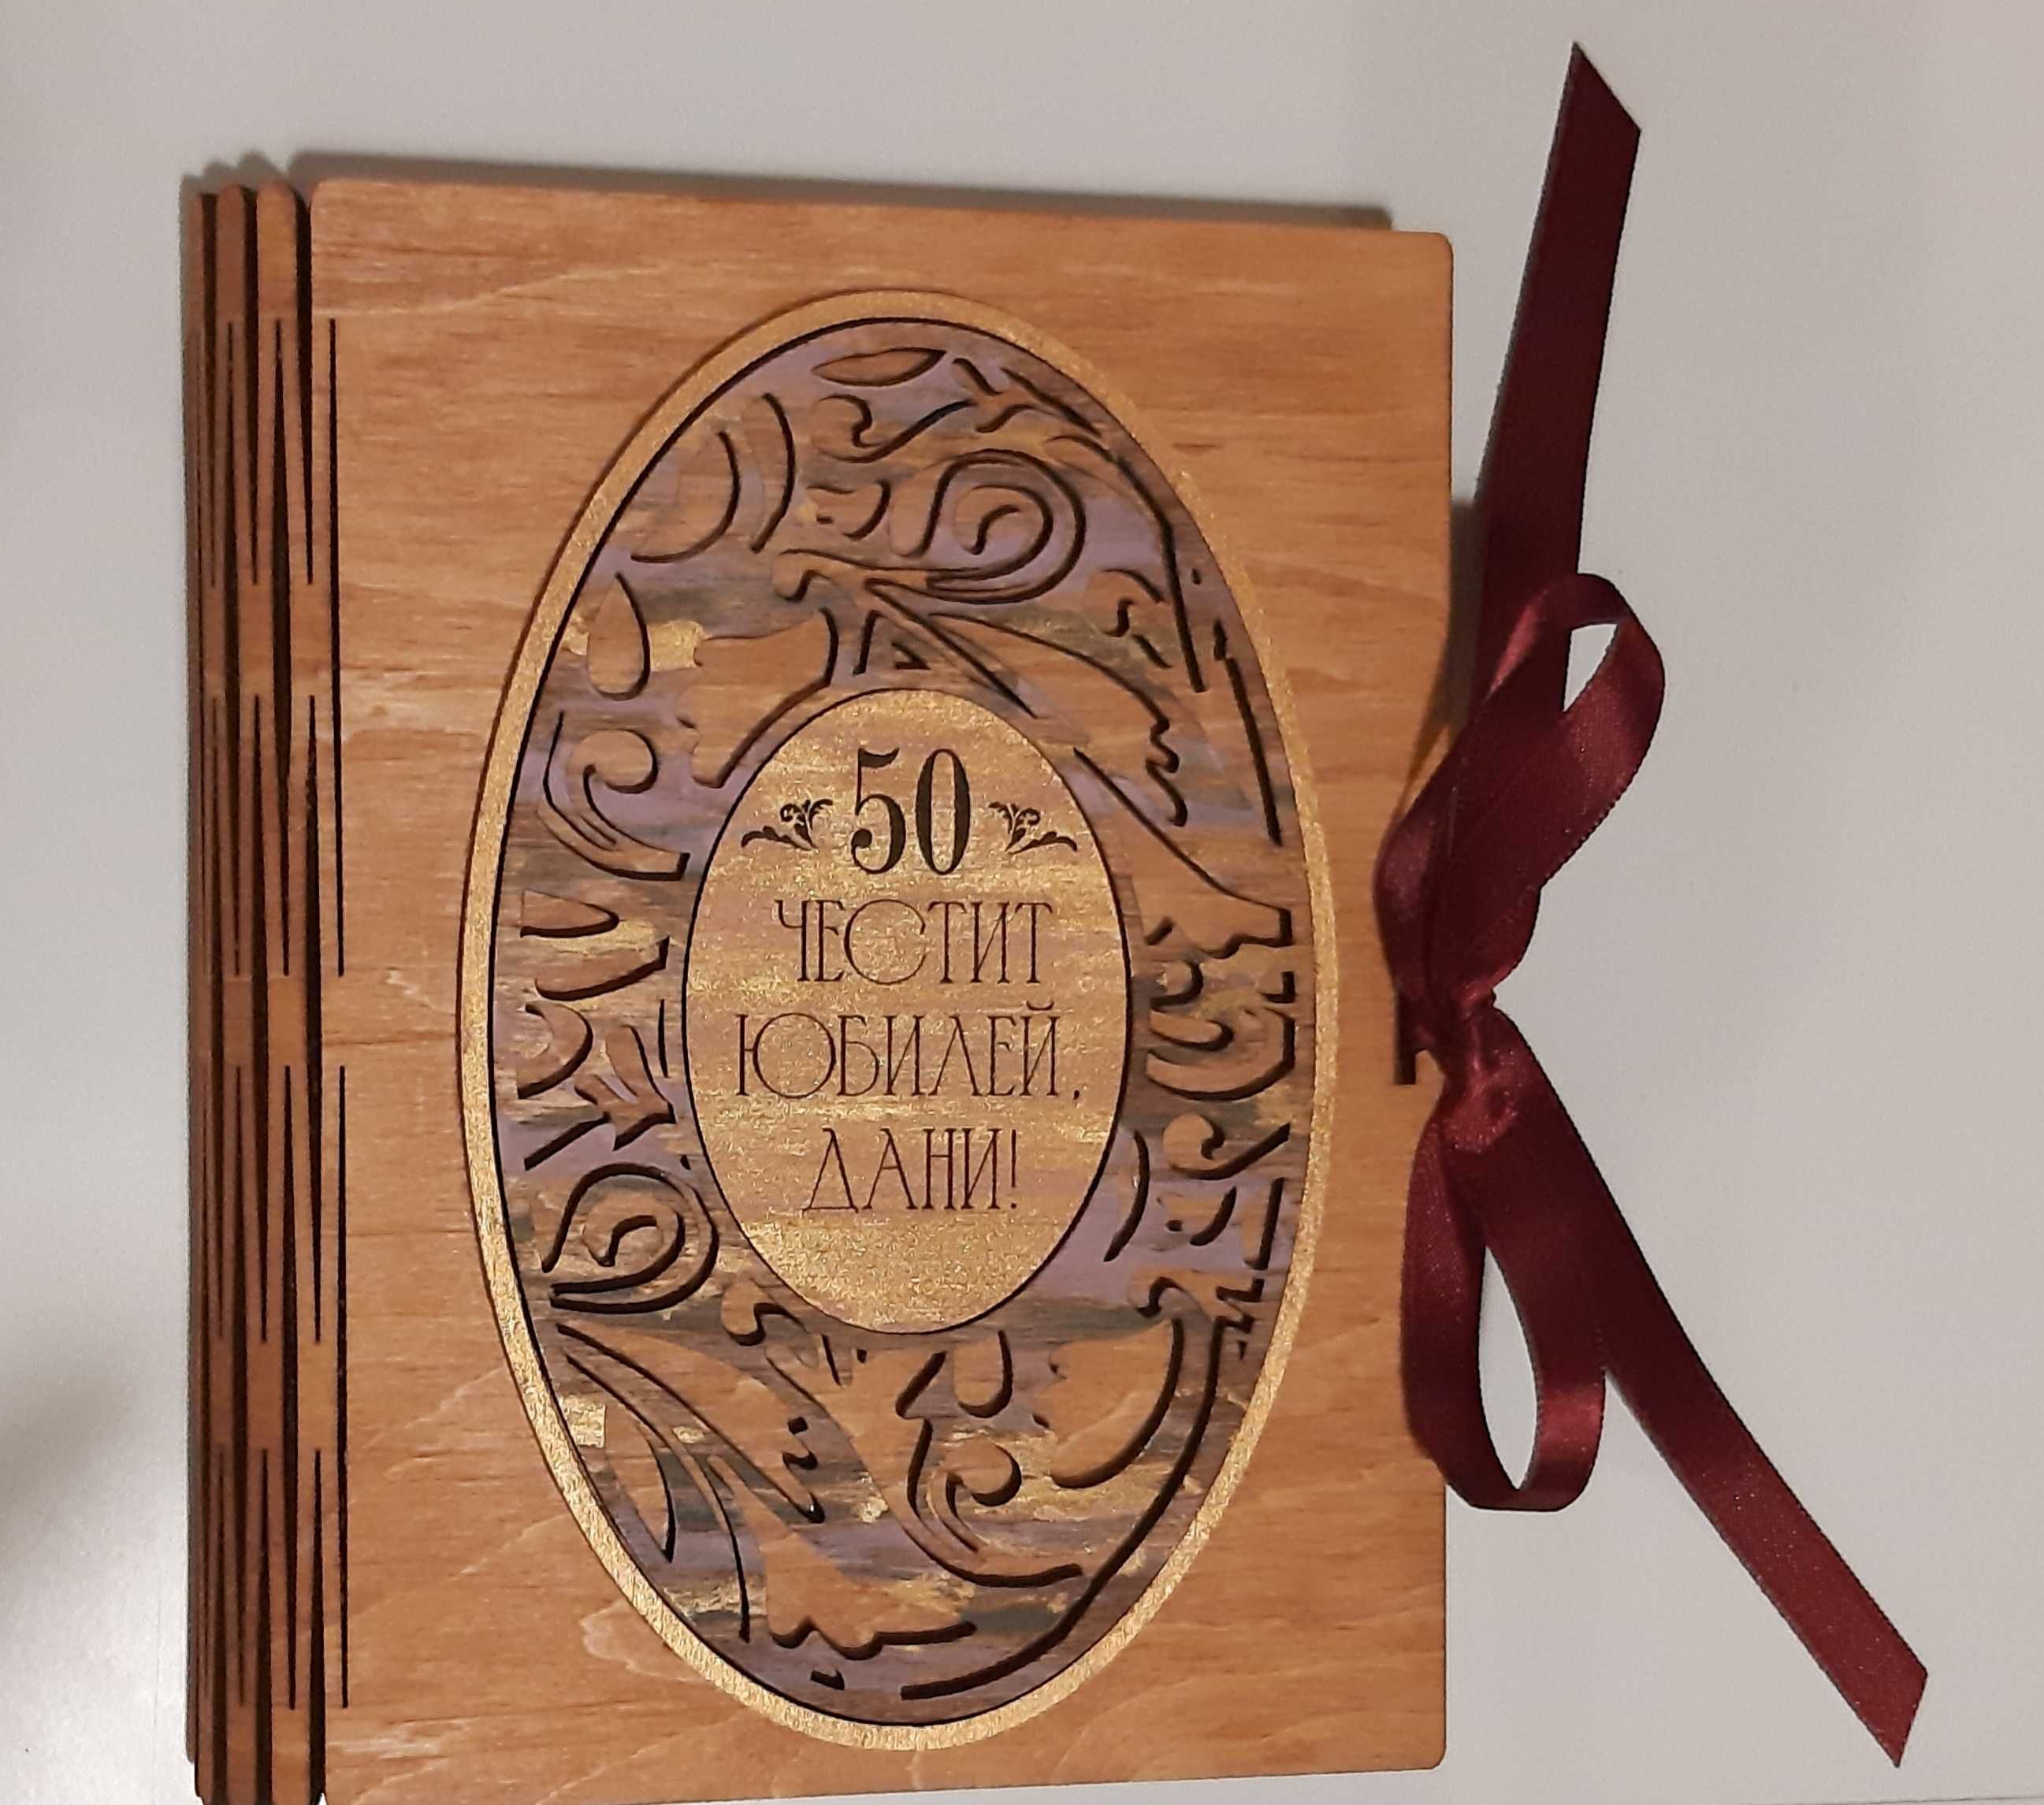 50
ЧЕСТИТ
ЮБИЛЕЙ,
ДАНИ!